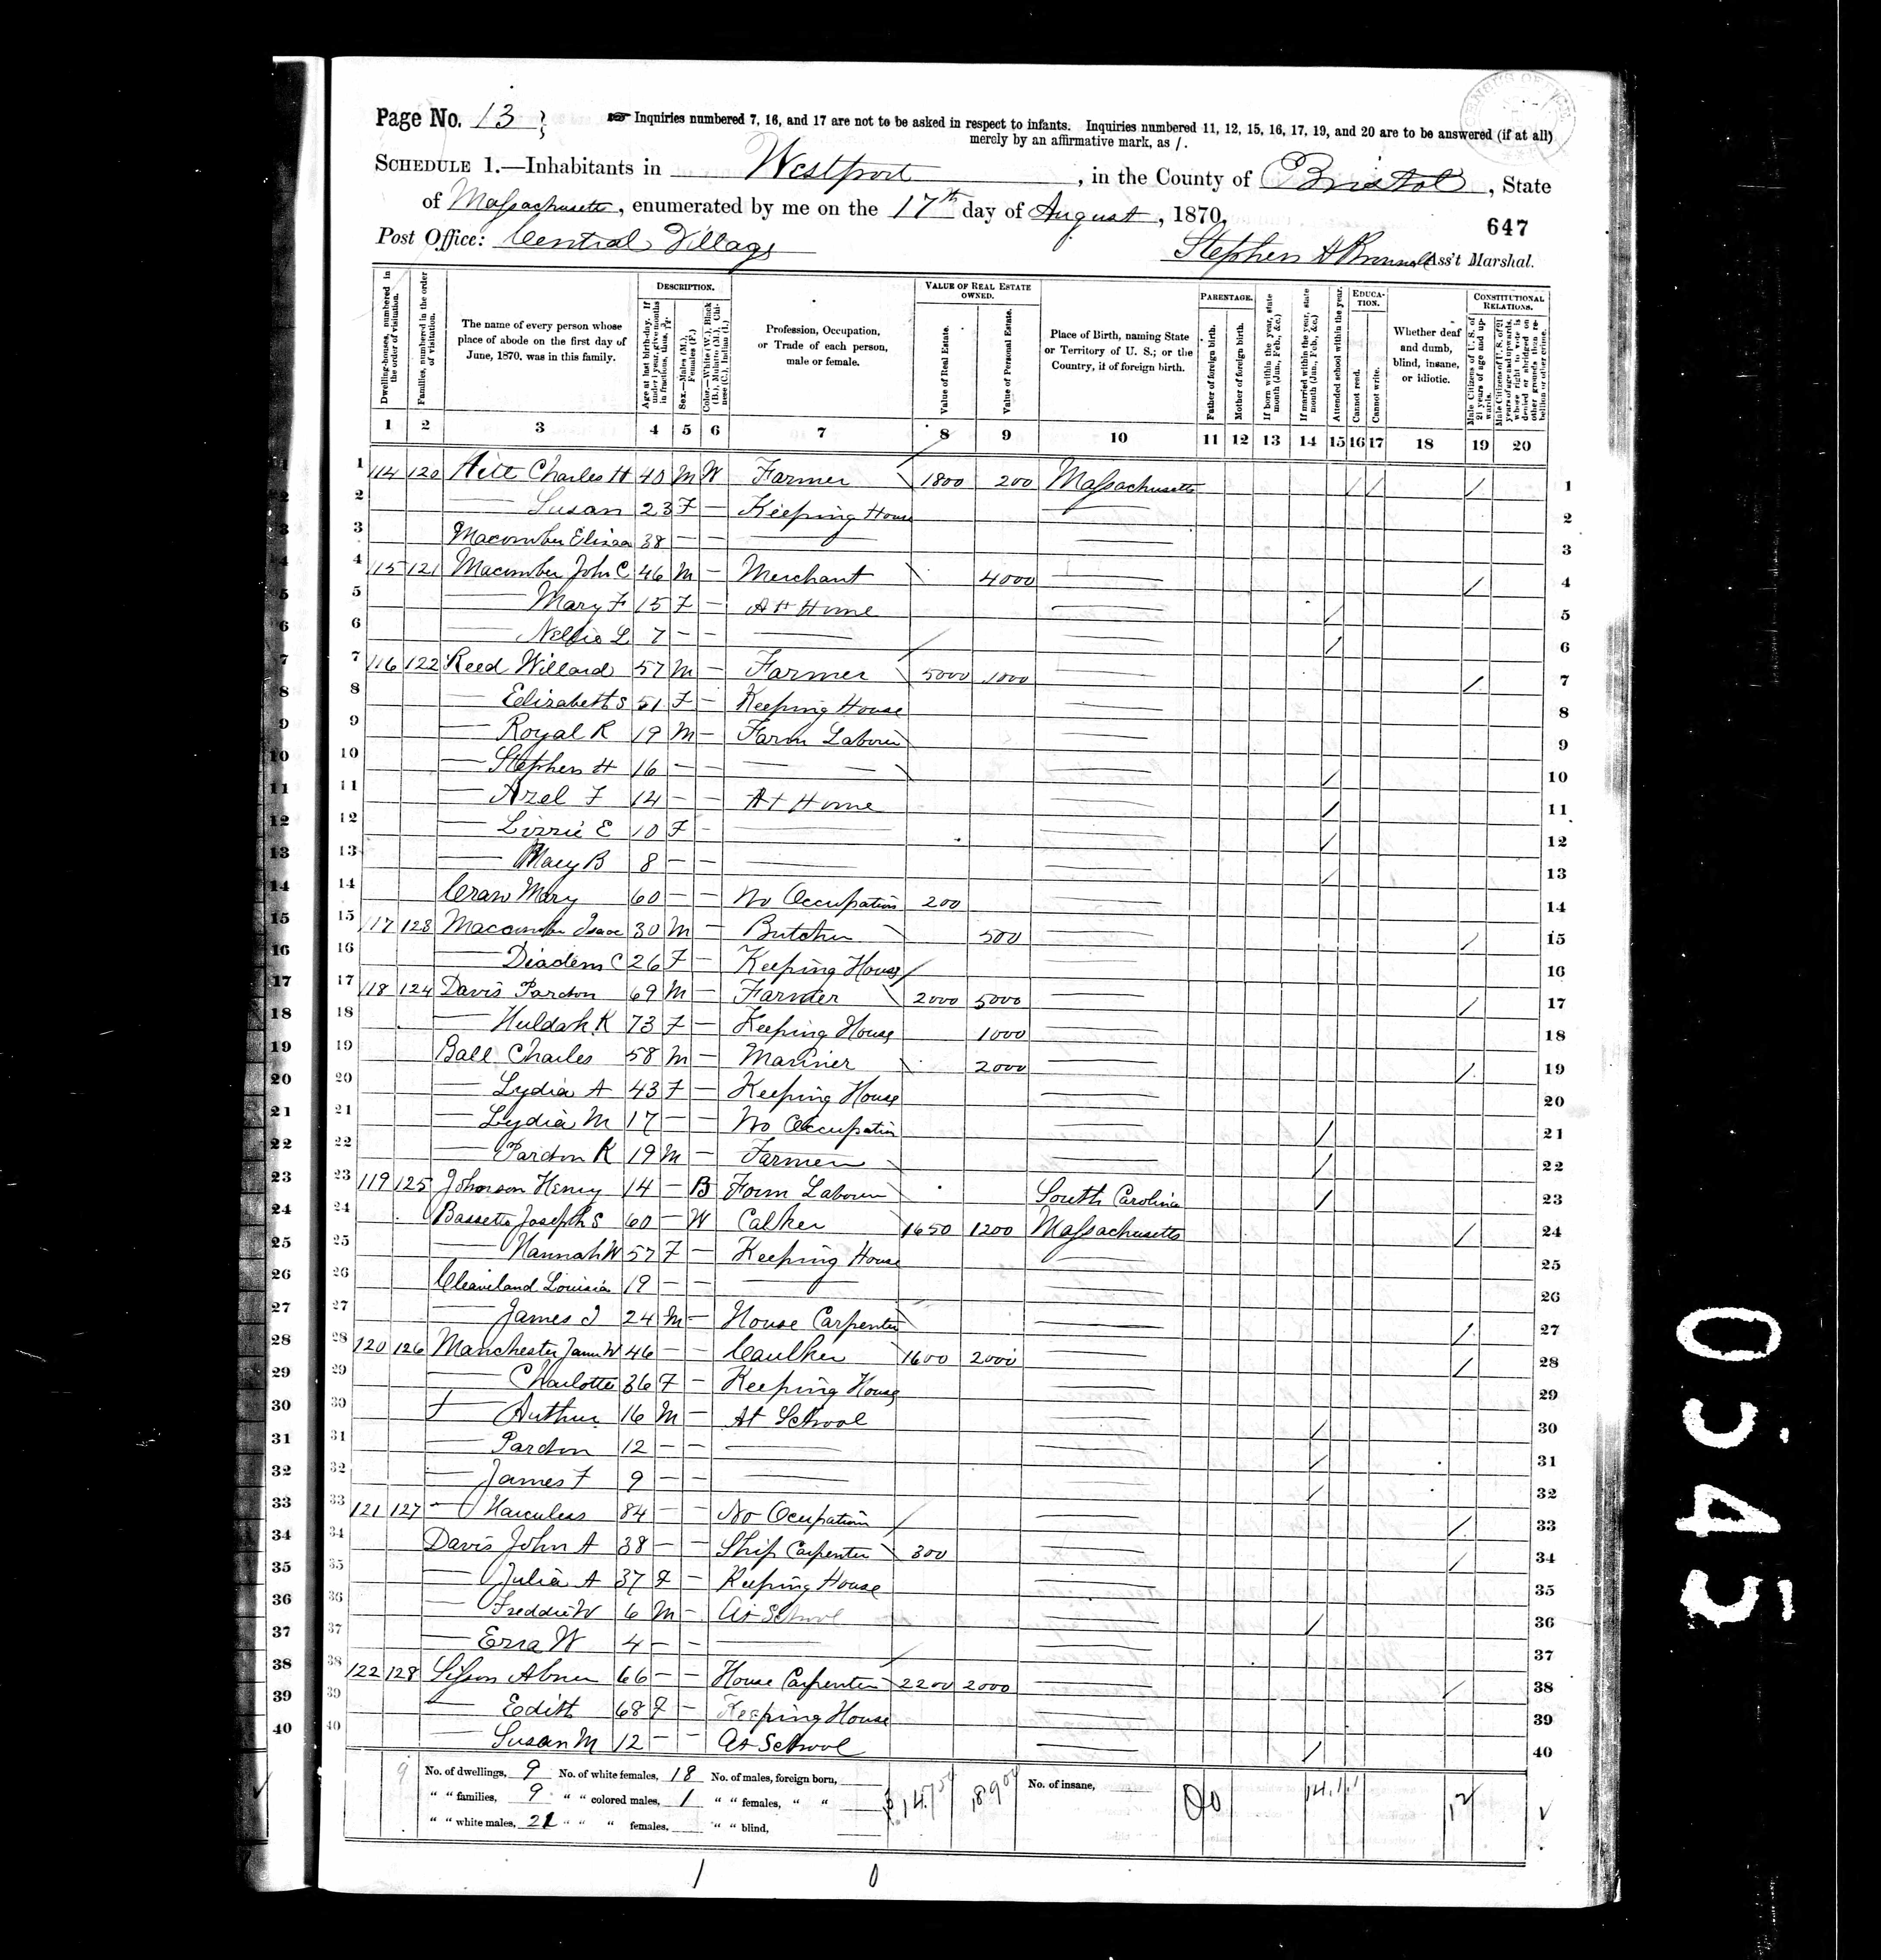 Page No. 13
Inquiries numbered 7, 16, and 17 are not to be asked in respect to infants. Inquiries numbered 11, 12, 15, 16, 17, 19, and 20 are to be answered (if at all)
merely by an affirmative mark, as /.
SCHEDULE 1.—Inhabitants in Westport, in the County of Bristol, State
of Massachusetts, enumerated by me on the 17th day of August, 1870.
647
Post Office: Central Village
Stephen H Ass't Marshal.
Dwelling-houses, numbered in the order of visitation.
Families, numbered in the order of visitation.
The name of every person whose place of abode on the first day of June, 1870, was in this family.
DESCRIPTION.
Age at last birth-day. If under 1 year, give months in fractions, thus, 3/12.
Sex.—Males (M.), Females (F.)
Color.—White (W.), Black (B.), Mulatto (M.), Chinese (C.), Indian (I.)
Profession, Occupation, or Trade of each person, male or female.
VALUE OF REAL ESTATE OWNED.
Value of Real Estate.
Value of Personal Estate.
Place of Birth, naming State or Territory of U. S.; or the Country, if of foreign birth.
PARENTAGE.
Father of foreign birth.
Mother of foreign birth.
If born within the year, state month (Jan., Feb., &c.)
If married within the year, state month (Jan., Feb., &c.)
Attended school within the year.
EDUCATION.
Cannot read.
Cannot write.
Whether deaf and dumb, blind, insane, or idiotic.
CONSTITUTIONAL RELATIONS.
Male Citizens of U. S. of 21 years of age and upwards.
Male Citizens of U. S. of 21 years of age and upwards, whose right to vote is denied or abridged on other grounds than rebellion or other crime.
1 2 3 4 5 6 7 8 9 10 11 12 13 14 15 16 17 18 19 20
1 114 120 Charles H 40 M W Farmer 1800 200 Massachusetts / / / 1
2 — Susan 23 F — Keeping House — 2
3 Macomber 38 — — — — 3
4 115 121 Macomber John C 46 M — Merchant 4000 — / 4
5 — Mary F 15 F — At Home — / 5
6 — Nellie L 7 — — — — / 6
7 116 122 Reed Willard 57 M — Farmer 5000 1000 — / 7
8 — Elizabeth S 51 F — Keeping House — 8
9 — Royal R 19 M — Farm Laborer — 9
10 — Stephen H 16 — — — — — / 10
11 — Azel F 14 — — At Home — / 11
12 — Lizzie E 10 F — — — / 12
13 — Mary B 8 — — — — / 13
14 Craw Mary 60 — — No Occupation 200 — 14
15 117 123 Macomber Isaac 30 M — Butcher 500 — / 15
16 — Diadem C 26 F — Keeping House — 16
17 118 124 Davis Pardon 69 M — Farmer 2000 5000 — / 17
18 — Huldah K 73 F — Keeping House 1000 — 18
19 Ball Charles 58 M — Mariner 2000 — / 19
20 — Lydia A 43 F — Keeping House — 20
21 — Lydia M 17 — — No Occupation — / 21
22 — Pardon K 19 M — Farmer — / 22
23 119 125 Johnson Henry 14 — B Farm Laborer South Carolina / 23
24 Bassett Joseph S 60 — W Calker 1650 1200 Massachusetts / 24
25 — Hannah W 57 F — Keeping House — 25
26 Cleaveland Louisia 19 — — — — 26
27 — James J 24 M — House Carpenter — / 27
28 120 126 Manchester James W 46 — — Caulker 1600 2000 — / 28
29 — Charlotte 36 F — Keeping House — 29
30 — Arthur 16 M — At School — / 30
31 — Pardon 12 — — — — / 31
32 — James F 9 — — — — / 32
33 121 127 — 84 — — No Ocupation — / 33
34 Davis John A 38 — — Ship Carpenter 300 — / 34
35 — Julia A 37 F — Keeping House — 35
36 — Freddie W 6 M — At School — / 36
37 — Ezra W 4 — — — — 37
38 122 128 Sisson Abner 66 — — House Carpenter 2200 2000 — / 38
39 — Edith 68 F — Keeping House — 39
40 — Susan M 12 — — At School — / 40
No. of dwellings, 9 No. of white females, 18 No. of males, foreign born,
" " families, 9 " " colored males, 1 " " females, " "
" " white males, 21 " " " females, " " blind,
No. of insane,
12
0543